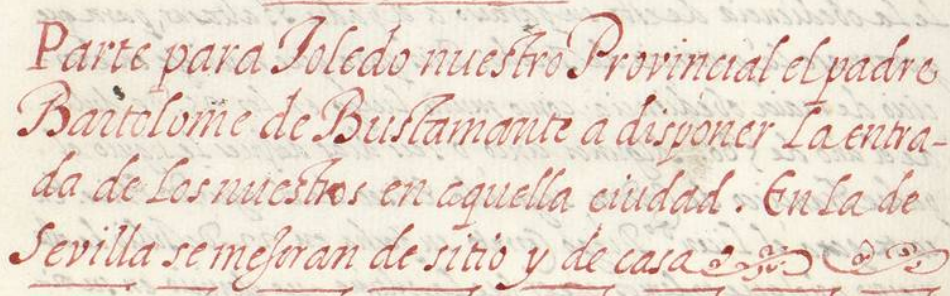 Parte para Toledo nuestro Provincial el padre
Bartolome de Bustamante a disponer la entra-
da de los nuestros en aquella ciudad. En la de
Sevilla se mejoran de sitio y de casa